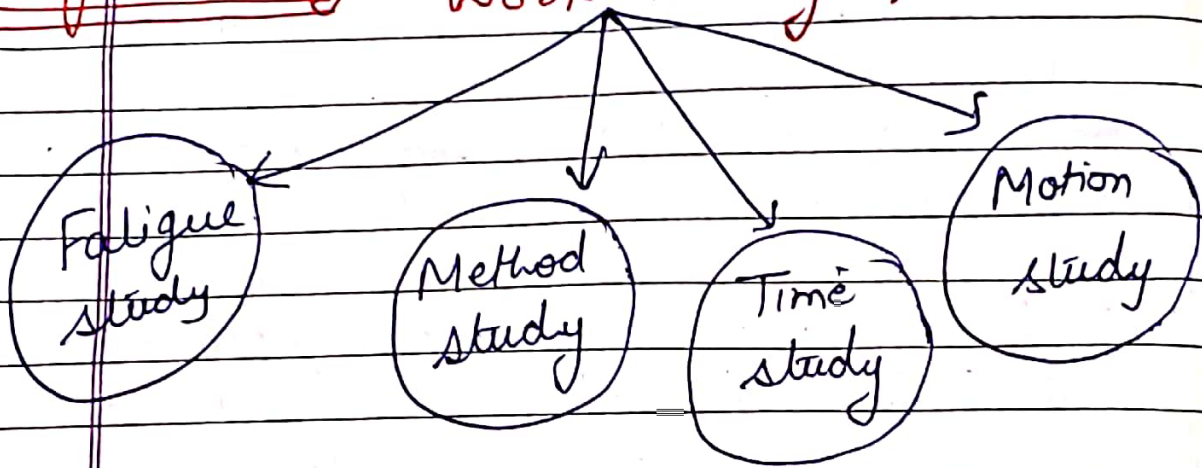 Fatigue
study
Method
study
Time
study
Motion
study